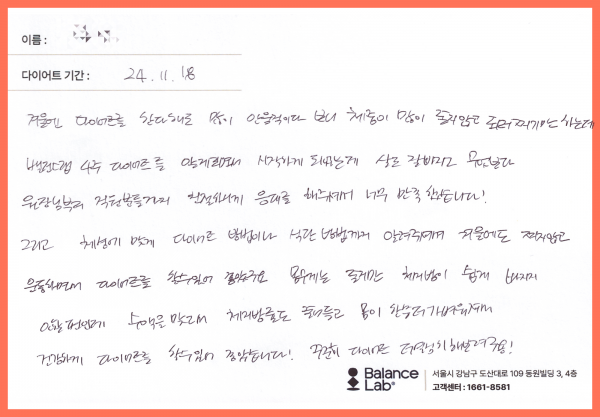 이름 :
다이어트 기간 : 24.11.18
겨울엔 다이어트를 한다해도 많이 안움직이다 보니 체중이 많이 줄지않고 찌기만 하는데
밸런스랩 4주 다이어트를 알게되면서 시작하게 되었는데 살도 잘빠지고 무엇보다
원장님부터 직원분들까지 친절하게 응대를 해주셔서 너무 만족합니다!
그리고 체질에 맞게 다이어트 방법이나 식단 방법까지 알려주셔서 겨울에도 찌지않고
운동하면서 다이어트를 할수있어 좋았구요 몸무게는 줄지만 체지방이 쉽게 빠지지
않을 편인데 수액을 맞고나서 체지방률도 줄어들고 몸이 한결더가벼워져서
건강하게 다이어트를 할수있어 좋았습니다! 꾸준히 다이어트 더열심히해보려구요!
Balance Lab®
서울시 강남구 도산대로 109 동원빌딩 3, 4층
고객센터 : 1661-8581